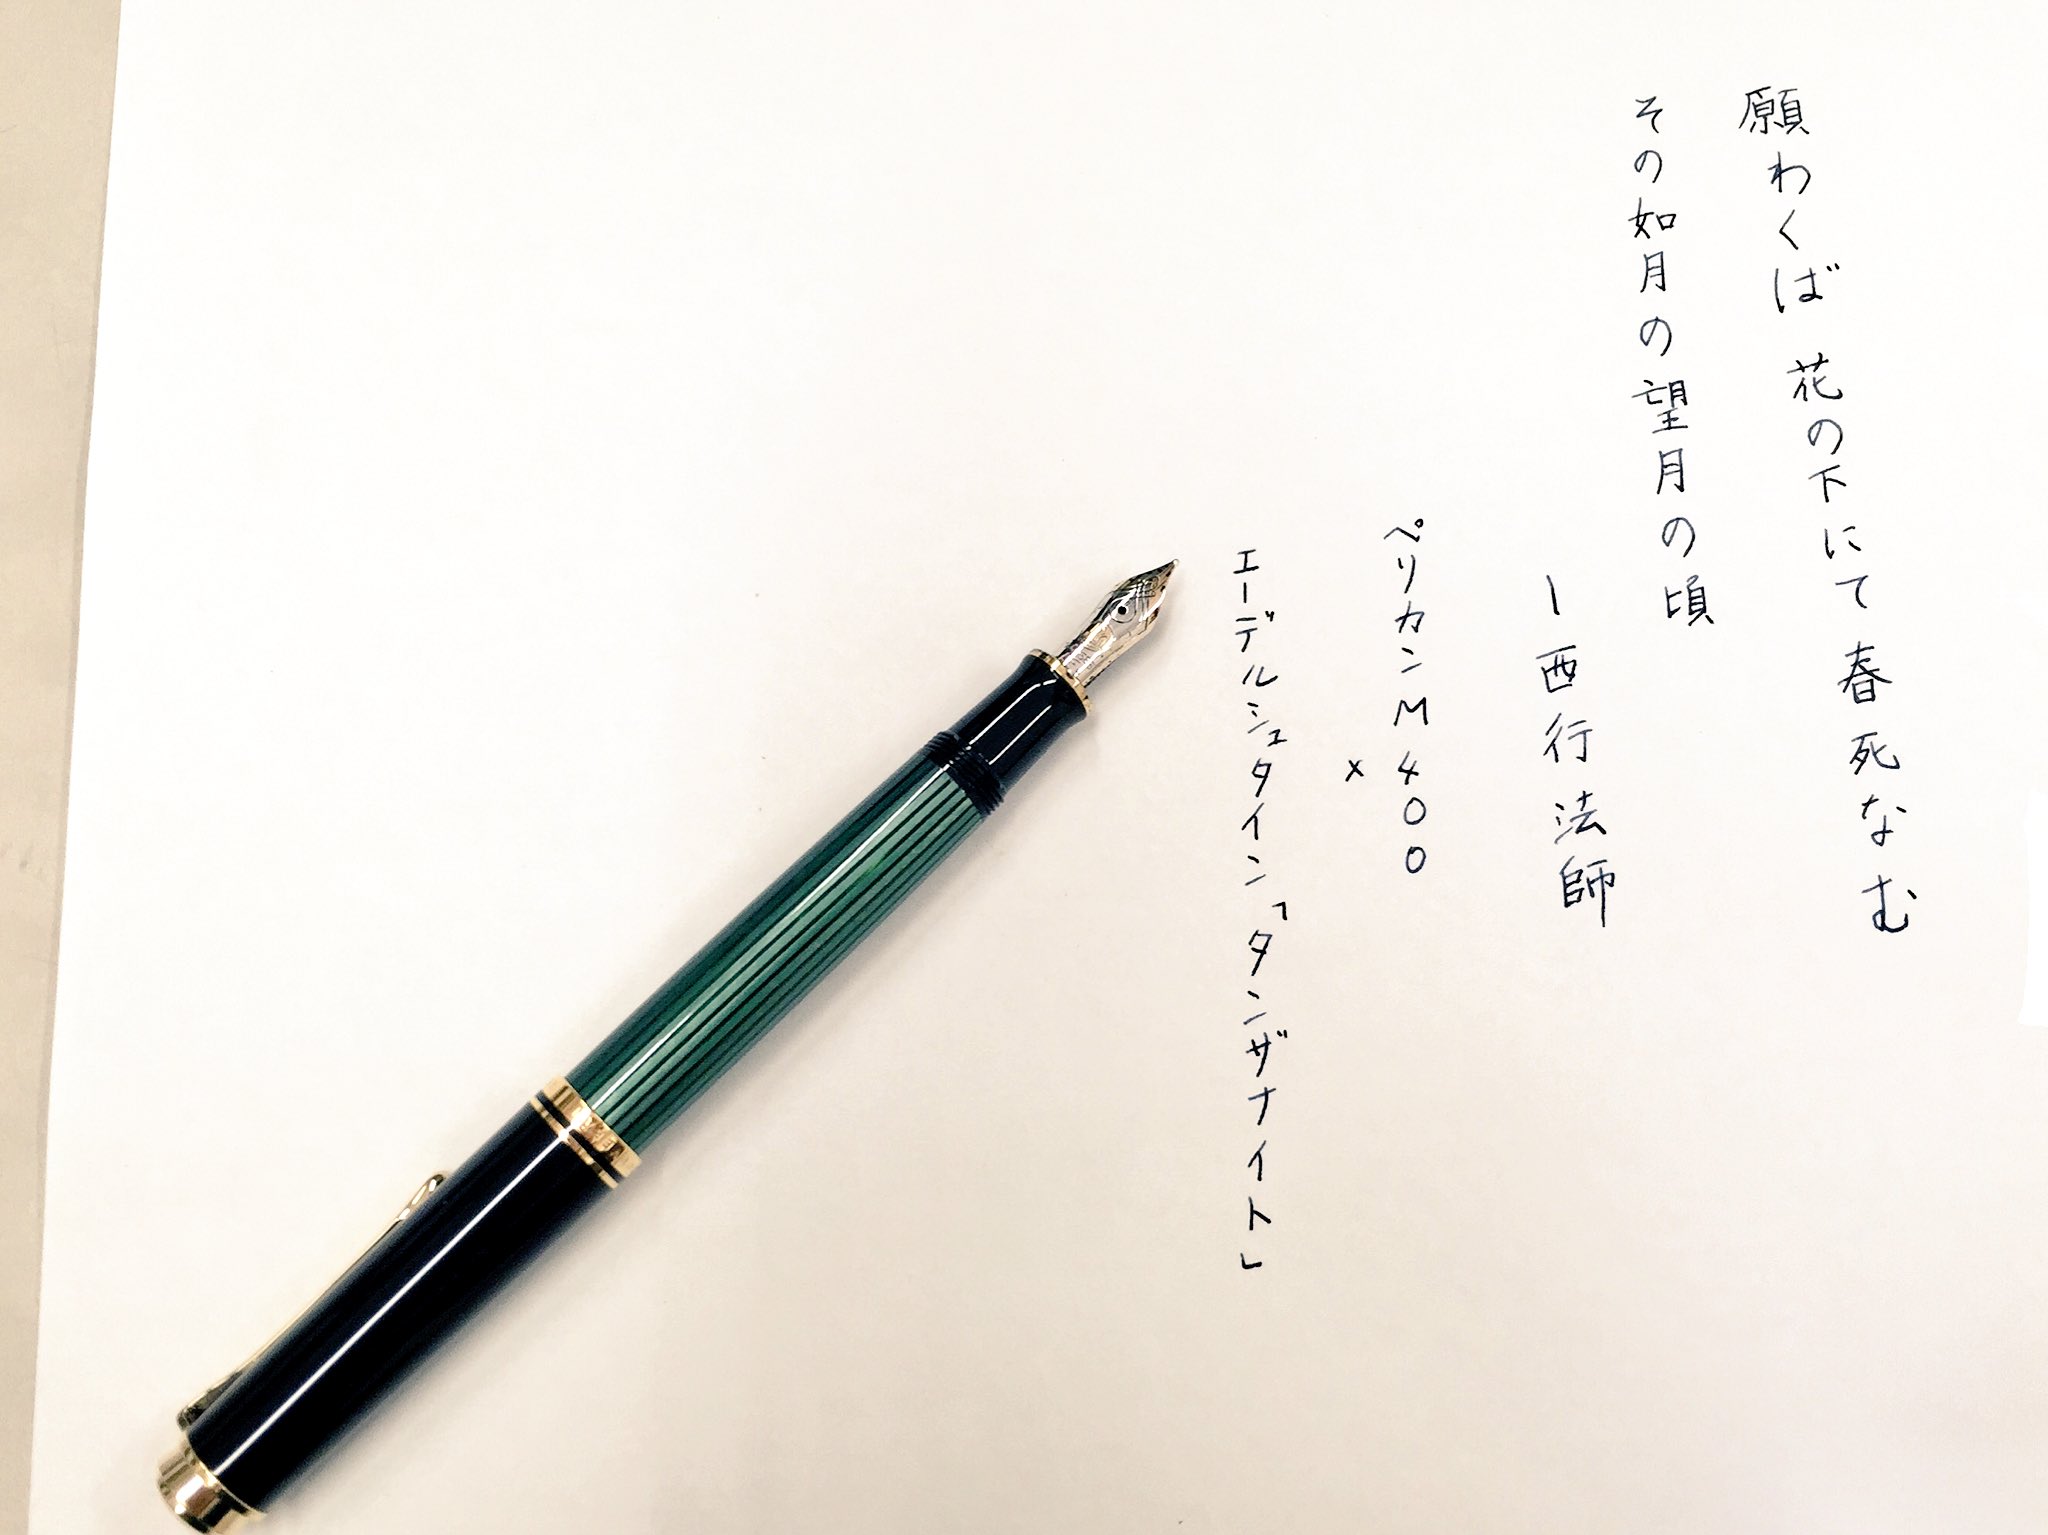 願わくば 花の下にて春死なむ
その如月の望月の頃
ー西行法師
ペリカンM400
×
エーデルシュタイン「タンザナイト」